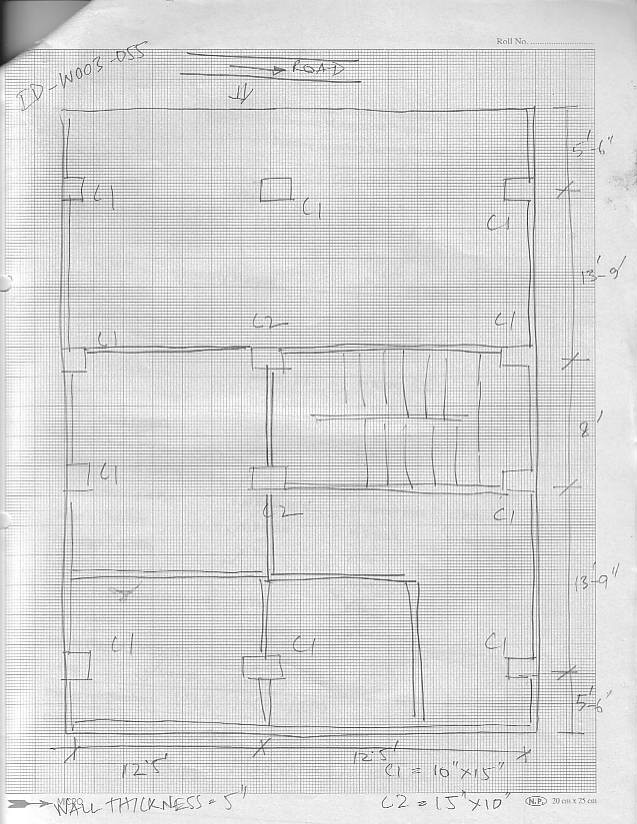 Roll No.
ID-W003-055
ROAD
5'-6"
C1
C1
C1
13'-9'
C1
C2
C1
8'
C1
C2
C1
13'-9"
C1
C1
C1
5'-6"
12'5'
12'5'
C1 = 10"X15"
WALL THICKNESS = 5"
C2 = 15"X10"
N.P. 20 cm x 25 cm